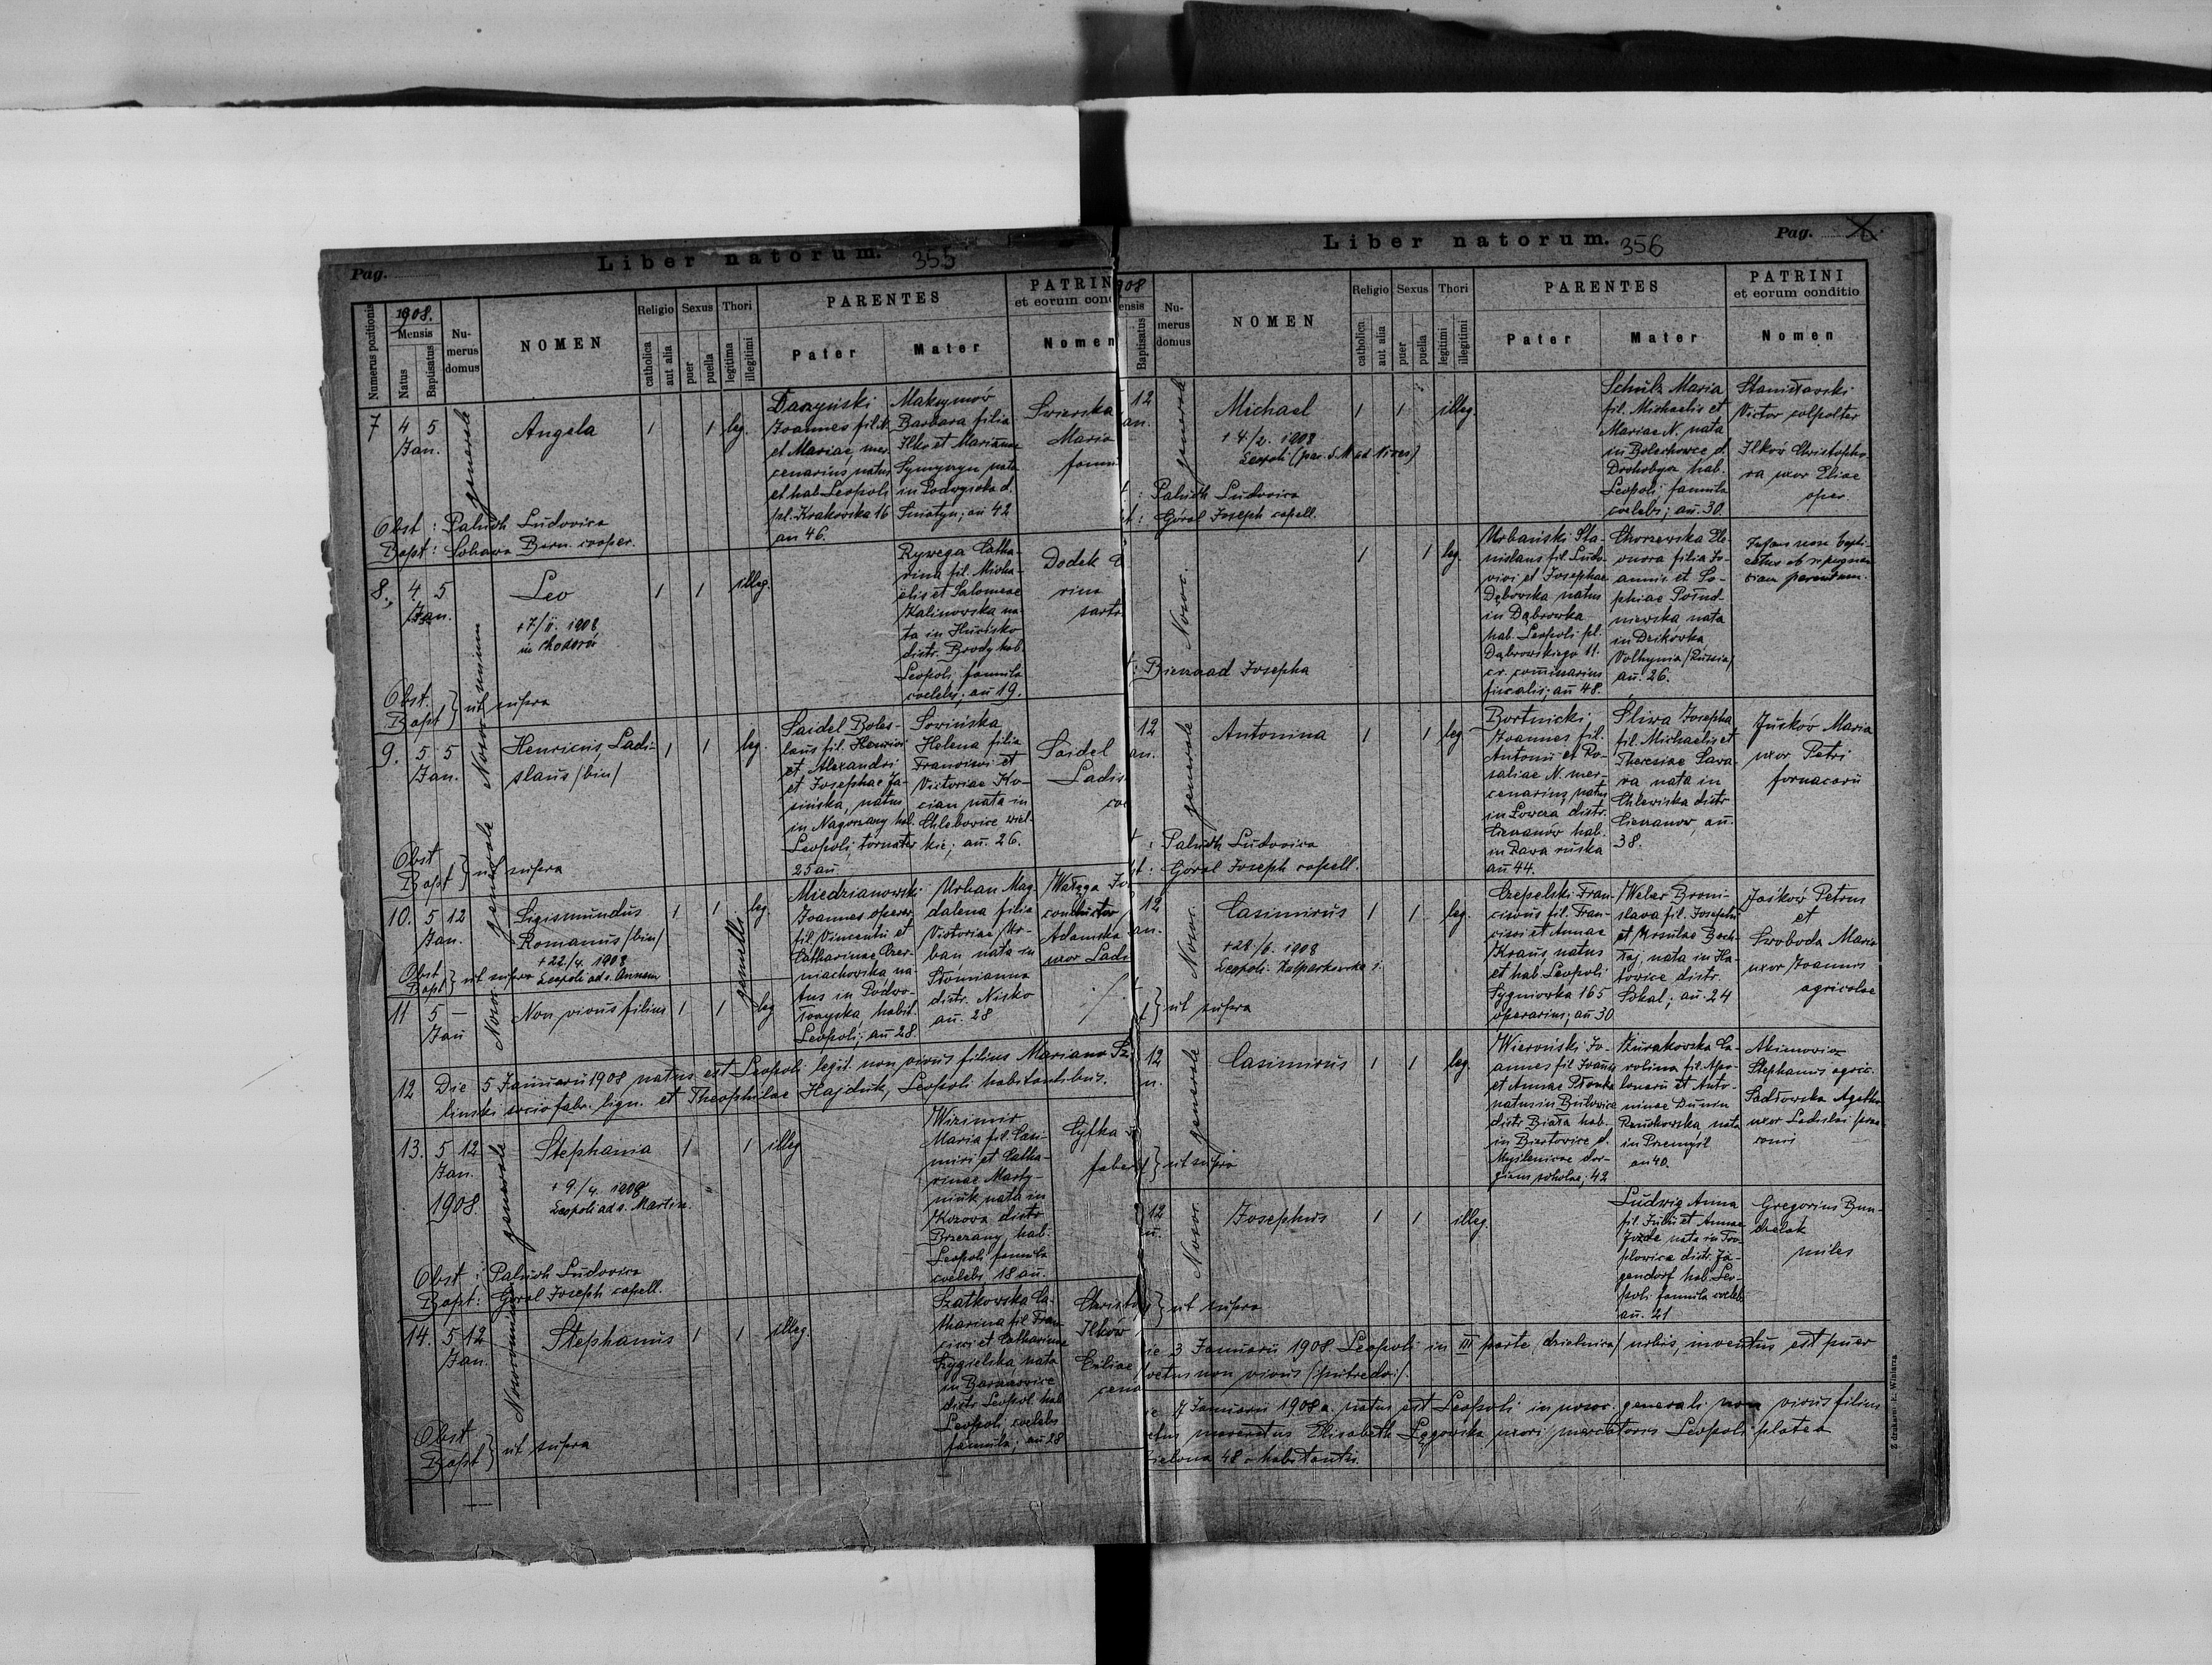 Pag.
Liber natorum. 355
Numerus positionis
1908.
Mensis
Natus
Baptisatus
Nu-
merus
domus
NOMEN
Religio
catholica
aut alia
Sexus
puer
puella
Thori
legitima
illegitimi
PARENTES
Pater
Mater
PATRIN
et eorum cond
Nomen
7 4 5
Jan.
generale
Angela
1 1 leg.
Daszyński
Joannes fil. N.
et Mariae, mer-
cenarius natus
et hab. Leopoli
pl. Krakowska 16
an 46.
Maksymów
Barbara filia
Ilko et Marianna
nata
in Podwysoka d.
Sniatyn; an 42
Swierska
Maria
famu
Obst: Paluch Ludovica
Bapt: Sohawa Bern. cooper.
8., 4 5
Jan.
Leo
+ 7/II. 1908
in Chodorów
1 1 illeg.
Rywega Catha-
rina fil. Micha-
elis et Salomeae
Kalinowska na-
ta in Hucisko
distr. Brody hab.
Leopoli, famula
coelebs; an 19.
Dodek
rina
sarto
Obst.
Bapt } ut supra
9. 5 5
Jan.
Henricus, Ladi-
slaus /bin/
1 1 leg.
Saidel Boles-
laus fil. Henrici
et Alexandri
et Josephae Ja-
sińska, natus
in Nagorzany hab.
Leopoli, tornator
25 an
Sowińska
Helena filia
Francisci et
Victoriae Ko-
cian nata in
Chlebowice wiel-
kie; an. 26.
Saidel
Ladis
coe
Obst
Bapt } ut supra
10. 5 12
Jan.
Sigismundus
Romanus /bin/
+ 22/4. 1908
Leopoli ad s. Annam
1 1 leg.
gemelli
Miedzianowski
Joannes operar.
fil. Vincentii et
Catharinae Czer-
niachowska na-
tus in Podwo-
łoczyska, habit.
Leopoli; an 28
Urban Mag-
dalena filia
Victoriae Ur-
ban nata in
distr. Nisko
an. 28
Wałęga Jo
conductor
Adamska
uxor Ladi
Obst
Bapt } ut supra
11 5 —
Jan
Non vivus filius
1 1 leg
12 Die 5 Januarii 1908 natus est Leopoli legit. non vivus filius Mariano
linski socio fabr. lign. et Theophilae Hajduk, Leopoli habitantibus.
13. 5 12
Jan.
1908.
generale
Stephania
+ 9/4. 1908
Leopoli ad s. Martin.
1 1 illeg
Wizimir
Maria fil. Casi-
miri et Catha-
rinae Marty-
niuk nata in
Kozowa distr
Brzezany, hab.
Leopoli famula
coelebs, 18 an.
Cyfka
faber
Obst: Paluch Ludovica
Bapt: Góral Joseph capell.
14. 5 12
Jan.
Stephanus
1 1 illeg.
Szatkowska Ca-
tharina fil. Fran-
cisci et Catharinae
Cygielska, nata
in Barszczowice
distr Leopol. hab
Leopoli, coelebs
famula; an 28
Christo
Ilków
Eliae
cena
Obst
Bapt } ut supra
908
Liber natorum. 356
Pag.
ensis
Baptisatus
Nu-
merus
domus
NOMEN
Religio
catholica
aut alia
Sexus
puer
puella
Thori
legitimi
illegitimi
PARENTES
Pater
Mater
PATRINI
et eorum conditio
Nomen
12
an.
generale
Michael
+ 4/2. 1908
Leopoli (par. S. M. ad Nives)
1 1 illeg.
Schulz Maria
fil. Michaelis et
Mariae N. nata
in Bolechowce d.
Drohobycz hab.
Leopoli famula
coelebs; an. 30.
Stanisławski
Victor colpolter
Ilków Christopho-
ra uxor Eliae
oper.
: Paluch Ludovica
t: Góral Joseph capell.
Nosoc.
1 1 leg.
Urbański Sta-
nislaus fil. Ludo-
vici et Josephae
Dębowska natus
in Dąbrowka
hab. Leopoli pl.
Dąbrowskiego 11.
cr. commisarius
fiscalis; an 48.
Chorzewska Ele-
onora filia Jo-
annis et So-
phiae Połud-
niewska nata
in Dzikówka
Volhynia /Russia/
an. 26.
Infans non bapti-
satus ob repugnan-
tiam parentum.
: Bienaad Josepha
12
an.
generale
Antonina
1 1 leg.
Bortnicki
Joannes fil.
Antonii et Ro-
saliae N. mer-
cenarius, natus
in Lowcza distr.
Cieszanów hab.
in Rawa ruska
an 44.
Śliwa Josepha
fil. Michaelis et
Theresiae Sawa-
ra nata in
Chlewiska distr
Cieszanow, an.
38.
Juśków Maria
uxor Petri
fornacarii
: Paluch Ludovica
t: Góral Joseph capell.
12
an.
Nosoc.
Casimirus
+ 28/6. 1908
Leopoli. Kulparkowska
1 1 leg.
Czepelski Fran-
ciscus fil. Fran-
cisci et Annae
Kraus, natus
et hab. Leopoli
Sygniowka 165
operarius; an 30
Weler Broni-
slava fil. Josephi
et Ursulae
nata in
distr.
Sokal; an. 24
Jaśków Petrus
et
Swoboda Maria
uxor Joannis
agricolae
} ut supra
12
n.
generale
Casimirus
1 1 leg.
Wieroński Jo-
annes fil Joannis
et Annae Płonka
natus in Bulowice
distr Biała hab.
in Biertowice d.
Myślenice dor-
gians scholae; 42
Żurakowska Ca-
rolina fil. Apo-
lonarii et Anto-
ninae Dunin
nata
in Przemyśl
an 40.
Akimowicz
Stephanus agric.
Sadłowska Agatha
uxor Ladislai
} ut supra
12
n.
Nosoc.
Josephus
1 1 illeg.
Ludwig Anna
fil. Julii et Annae
nata in Tro-
plowice distr. Jä-
gendorf hab. Leo-
poli famula coelebs
an. 21
Gregorius Bun-
dzelak
miles
} ut supra
ie 3 Januarii 1908 Leopoli in III parte /dzielnica/ urbis, inventus est puer
oetus non vivus /putredo/.
ie 7 Januarii 1908 a. natus est Leopoli in nosoc. generali non vivus filius
Elisabeth Łęgowska uxori mercatoris Leopoli platea
ielona 48 habitantis.
Z drukarni E. Winiarza